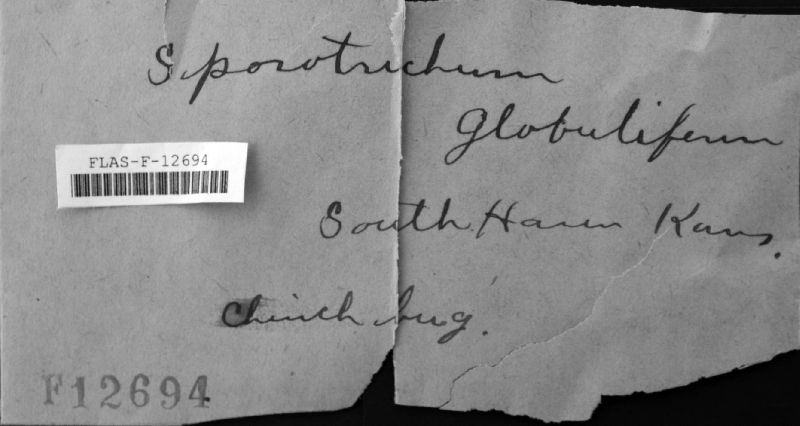 Sporotrichum
globuliferum
FLAS-F-12694
South Haven Kans.
Chinch bug.
F12694